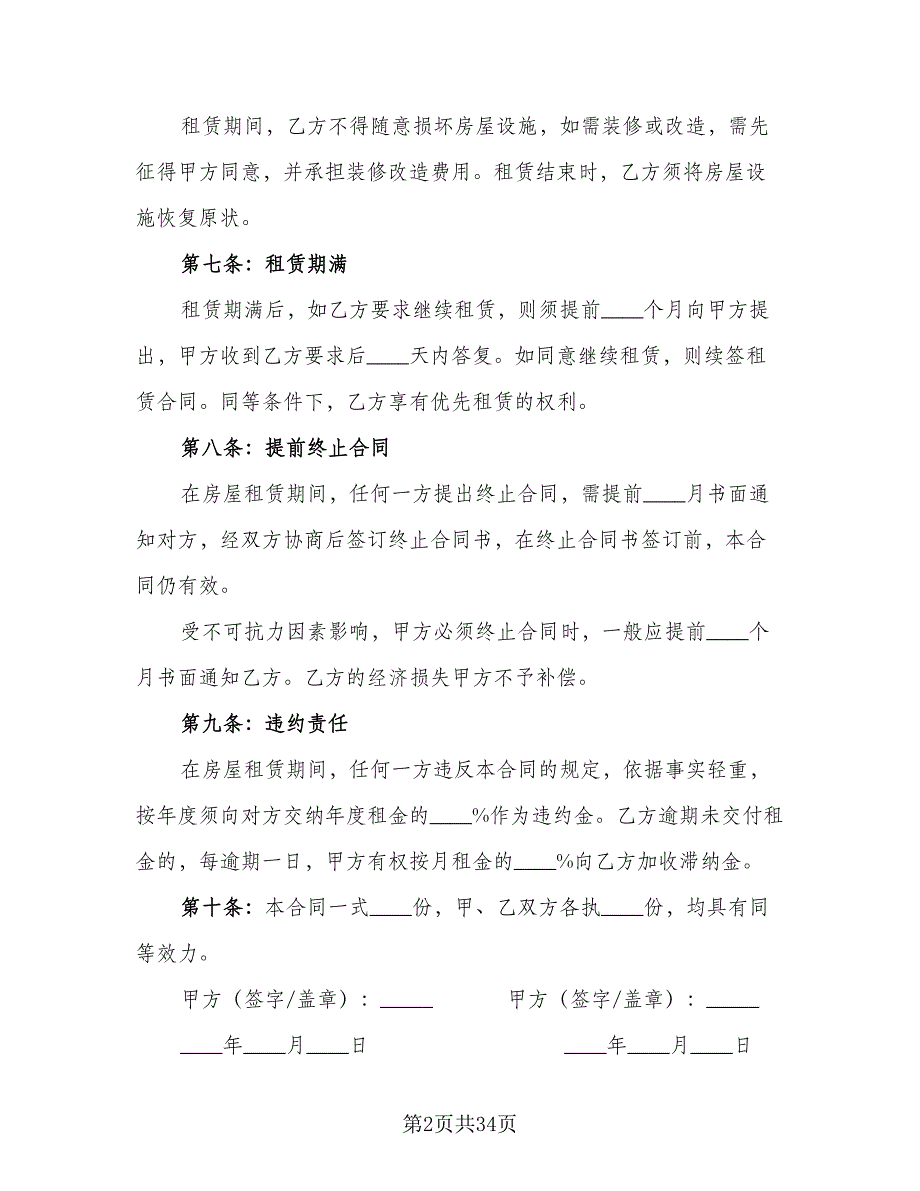 租赁期间，乙方不得随意损坏房屋设施，如需装修或改造，需先
征得甲方同意，并承担装修改造费用。租赁结束时，乙方须将房屋设
施恢复原状。
第七条：租赁期满
租赁期满后，如乙方要求继续租赁，则须提前____个月向甲方提
出，甲方收到乙方要求后____天内答复。如同意继续租赁，则续签租
赁合同。同等条件下，乙方享有优先租赁的权利。
第八条：提前终止合同
在房屋租赁期间，任何一方提出终止合同，需提前____月书面通
知对方，经双方协商后签订终止合同书，在终止合同书签订前，本合
同仍有效。
受不可抗力因素影响，甲方必须终止合同时，一般应提前____个
月书面通知乙方。乙方的经济损失甲方不予补偿。
第九条：违约责任
在房屋租赁期间，任何一方违反本合同的规定，依据事实轻重，
按年度须向对方交纳年度租金的____%作为违约金。乙方逾期未交付租
金的，每逾期一日，甲方有权按月租金的____%向乙方加收滞纳金。
第十条：本合同一式____份，甲、乙双方各执____份，均具有同
等效力。
甲方（签字/盖章）：_____ 甲方（签字/盖章）：_____
____年____月____日 ____年____月____日
第2页共34页